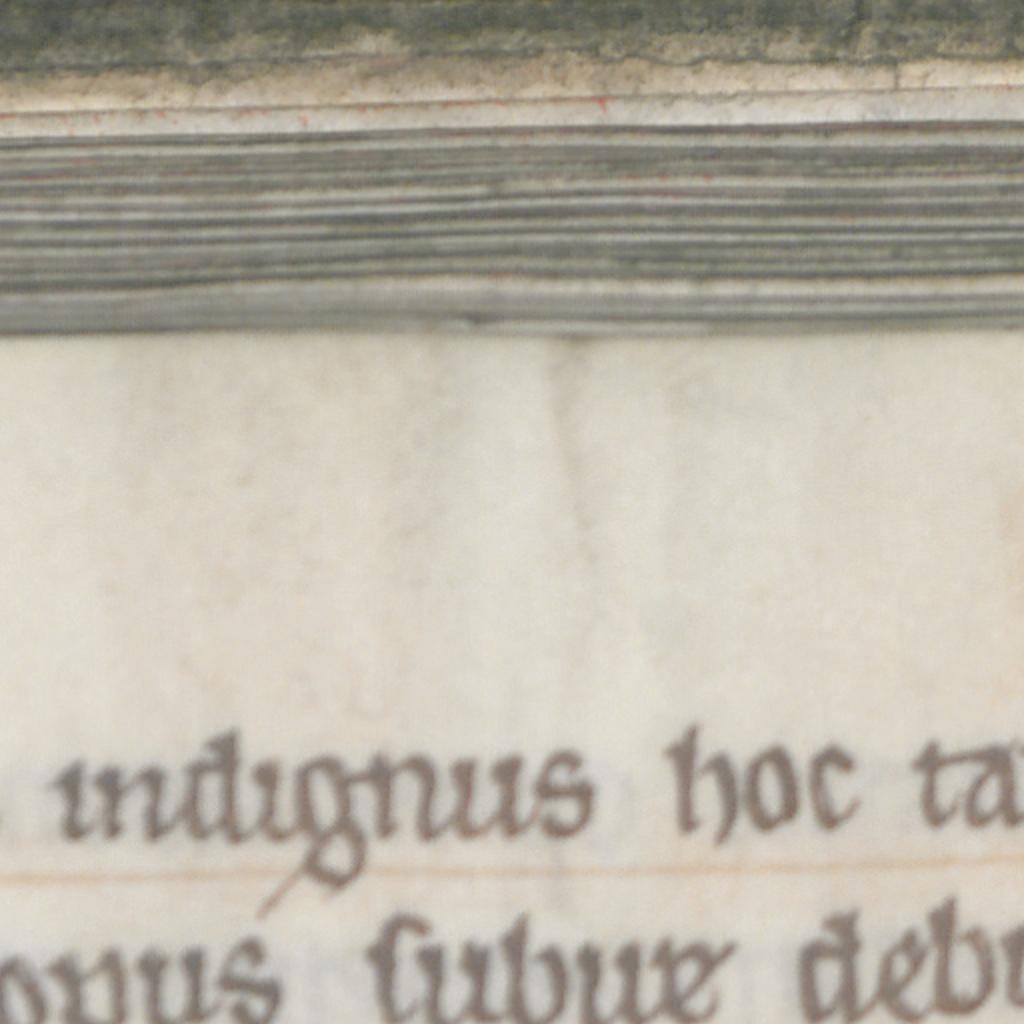 indignus hoc ta
opus subire deb